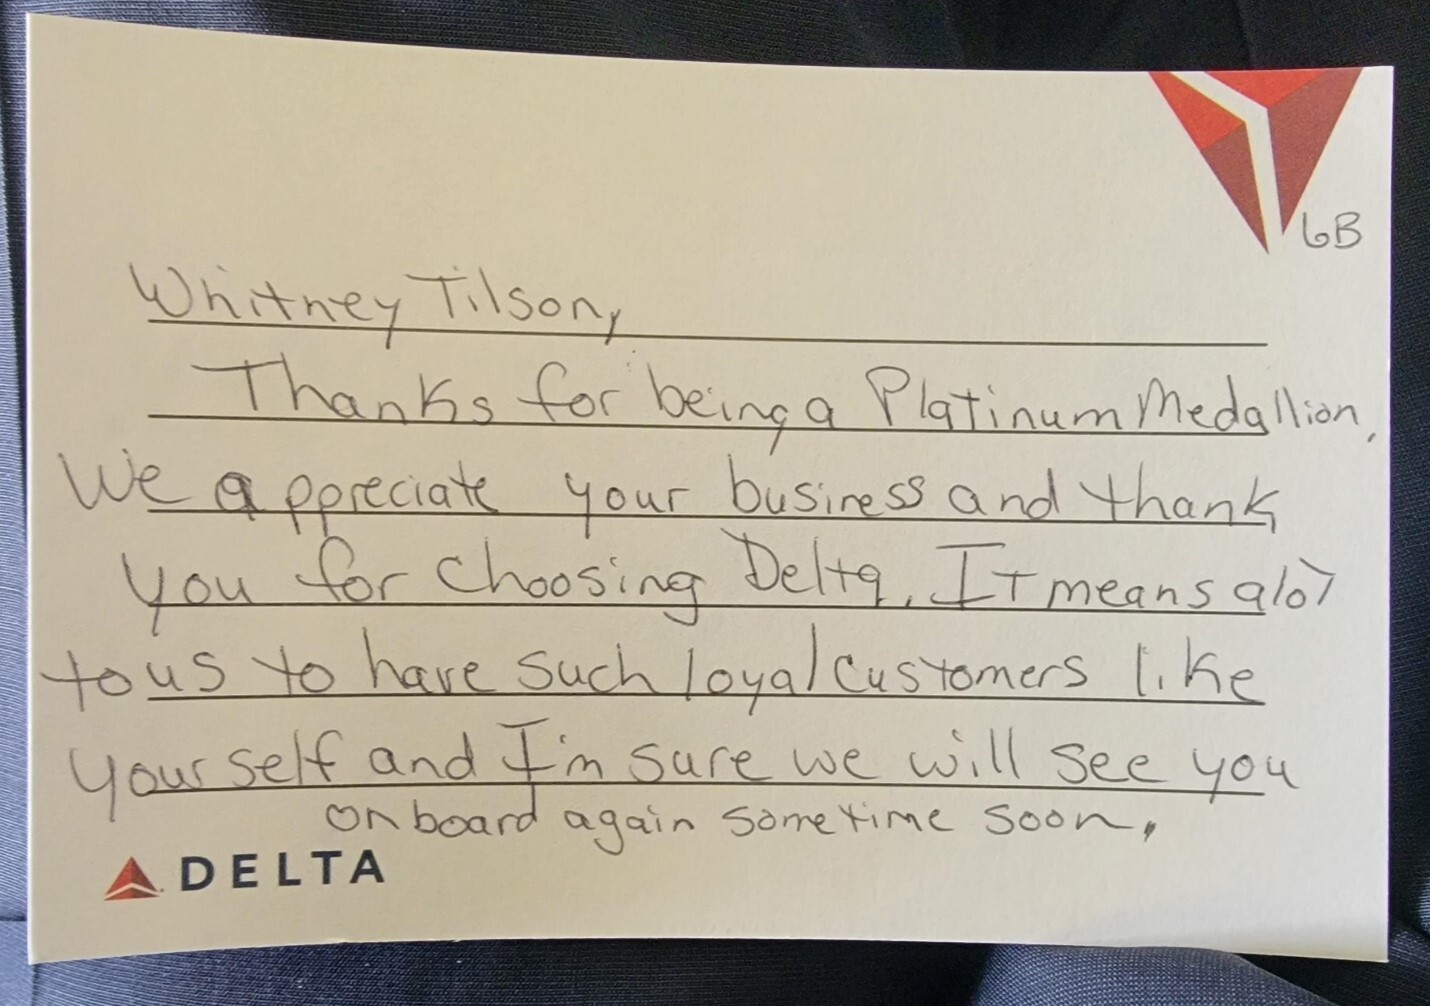 6B
Whitney Tilson,
Thanks for being a Platinum Medallion.
We appreciate your business and thank
you for choosing Delta. It means alot
to us to have such loyal customers like
yourself and I'm sure we will see you
on board again sometime soon.
DELTA